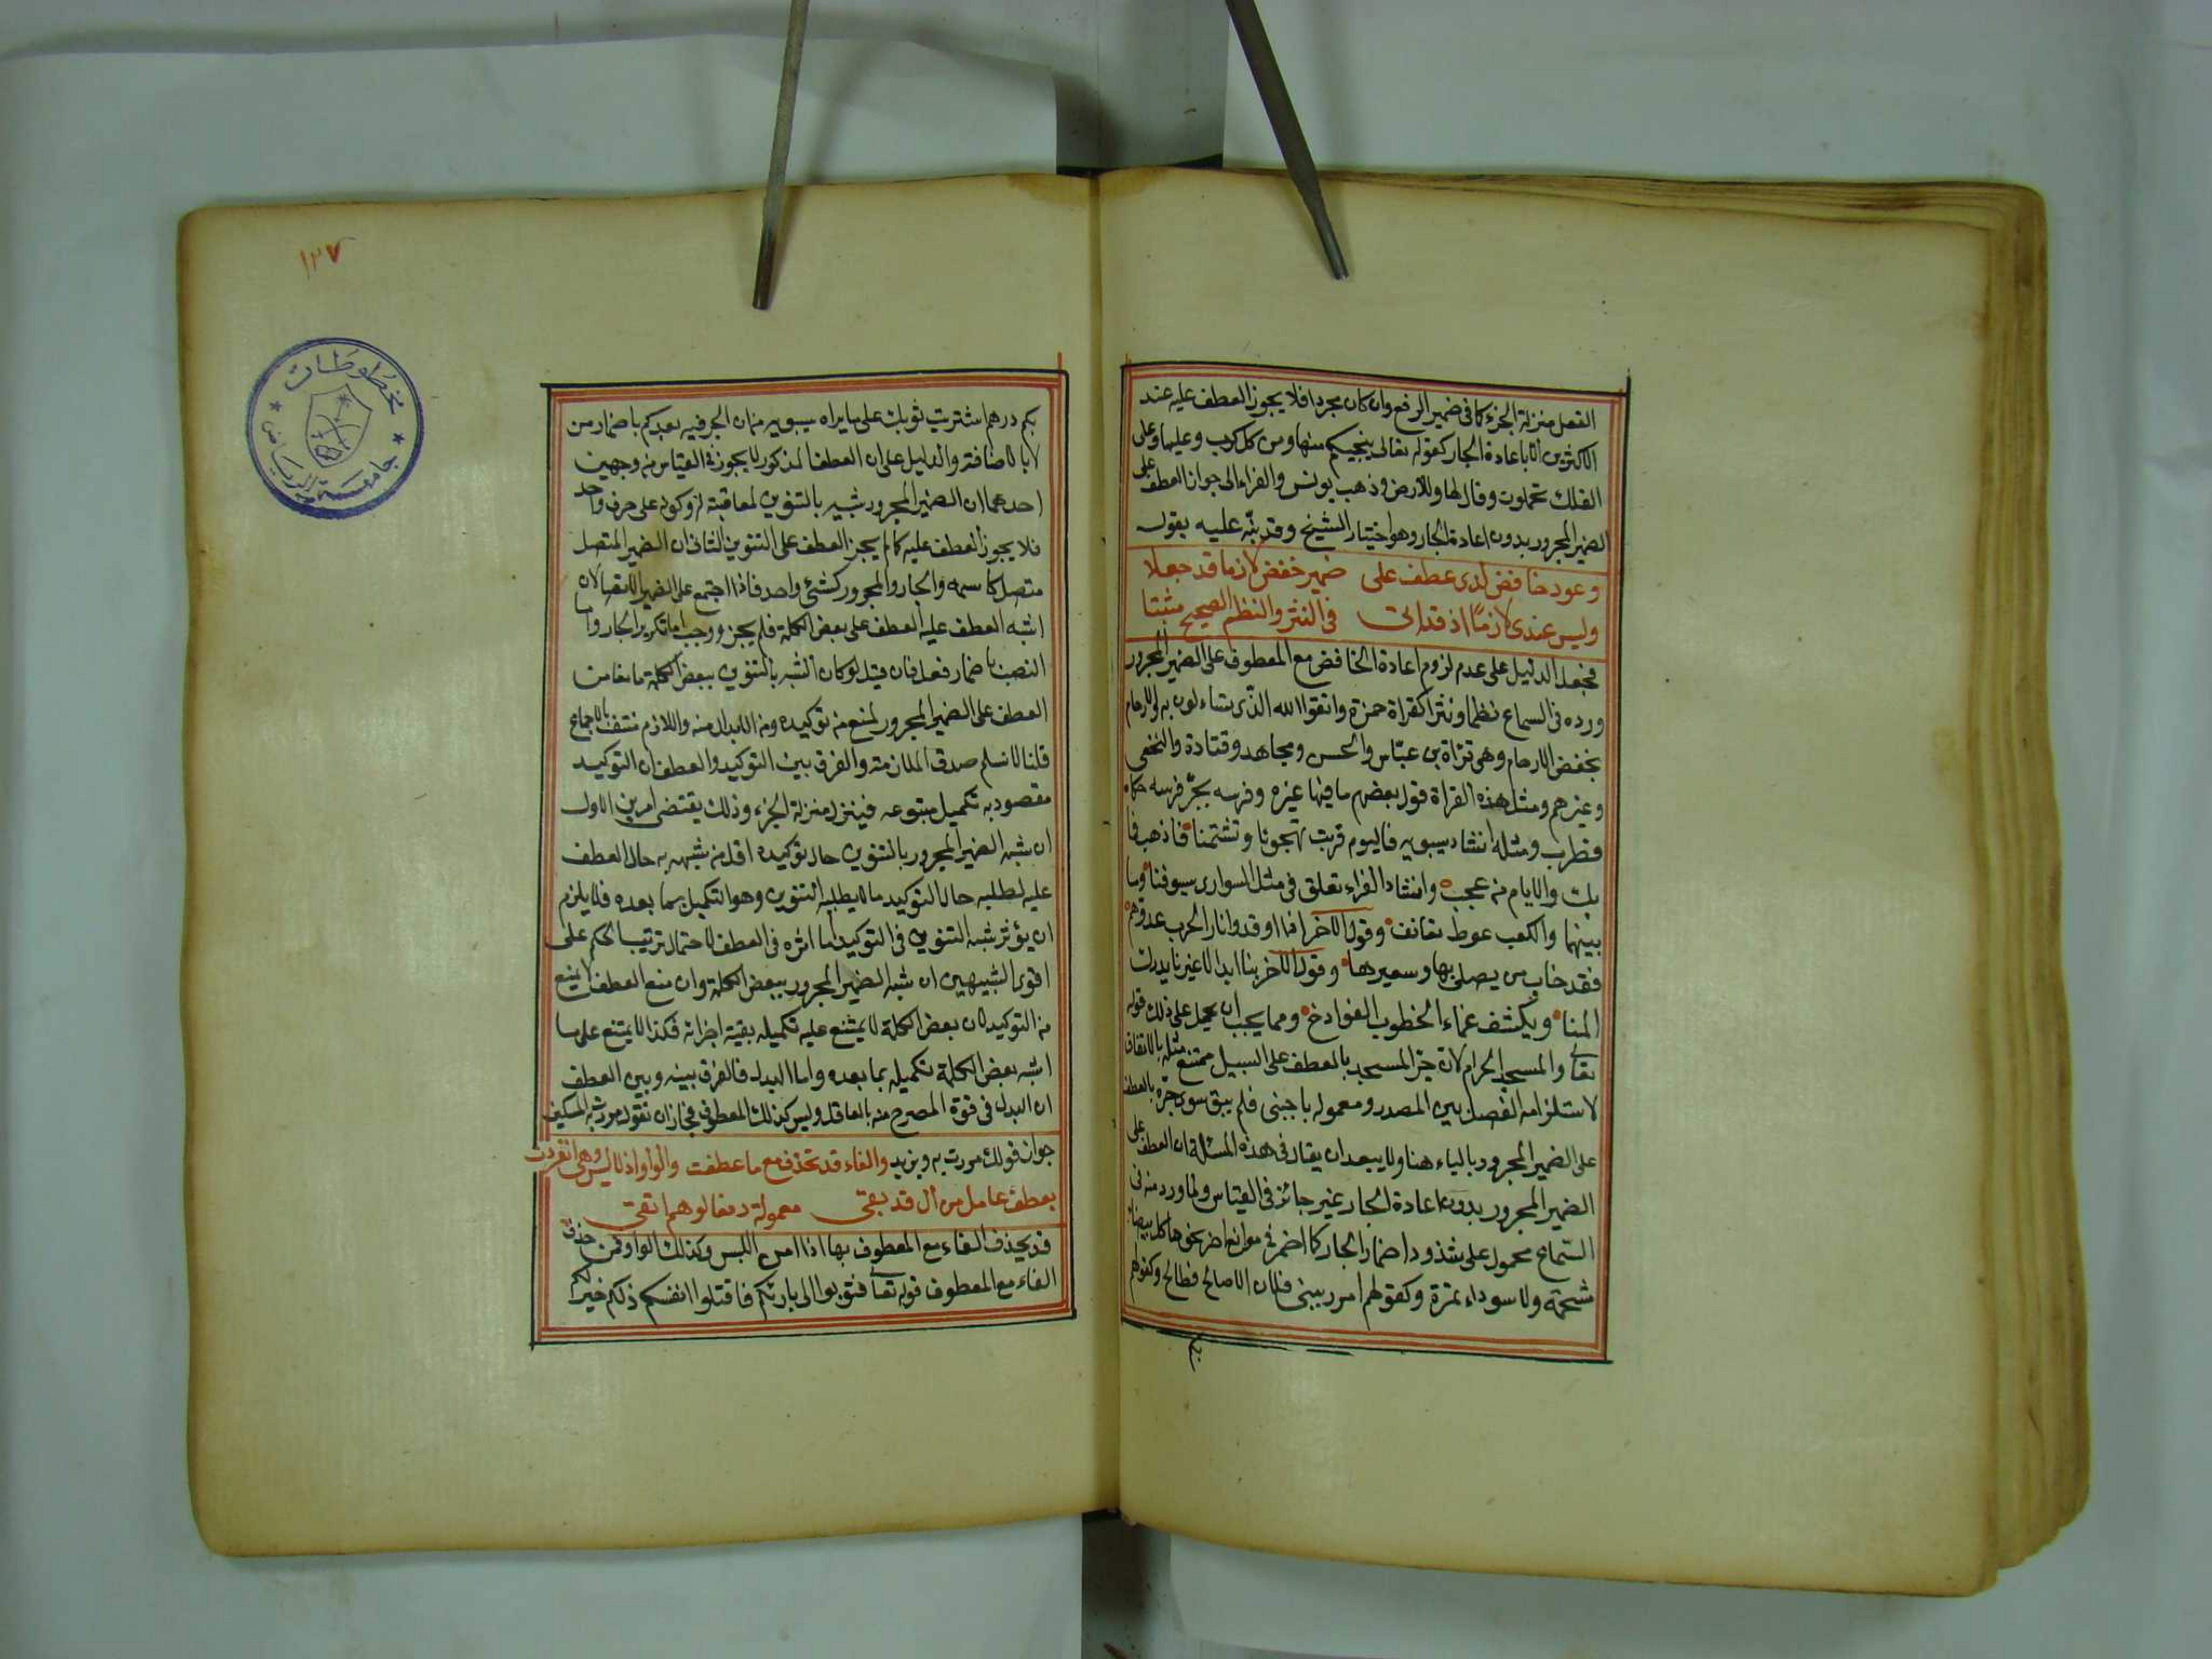 الفعل منزلة الجزء كما فى ضمير الرفع وان كان مجردا فلا يجوز العطف عليه عند
الاكثرين الا باعادة الجار كقوله تعالى ينجيكم منها ومن كل كرب وعليها وعلى
الفلك تحملون وقال لها وللارض وذهب يونس والفراء الى جواز العطف على
الضمير المجرور بدون اعادة الجار وهو اختيار الشيخ وقد نبّه عليه بقوله
وعود خافض لدى عطف على ضمير خفض لازما قد جعلا
وليس عندى لازمًا اذ قد اتى فى النثر والنظم الصحيح مثبتا
فجعل الدليل على عدم لزوم اعادة الخافض مع المعطوف على الضمير المجرور
وروده فى السماع نظما ونثرا كقراة حمزة واتقوا الله الذى تساءلون به والارحام
بخفض الارحام وهى قراة بن عبّاس والحسن ومجاهد وقتادة والنخعى
وغيرهم ومثل هذه القراة قول بعضهم ما فيها غيره وفرسه بجرّ فرسه حكاه
قطرب ومثله انشاد سيبويه فاليوم قربت تهجونا وتشتمنا فاذهب فما
بك والايام من عجب وانشاد الفراء تعلق فى مثل السوارى سيوفنا وما
بينها والكعب غوط نفانف وقول الاخر اذا اوقدوا نارا لحرب عدوهم
فقد خاب من يصلى بها وسعيرها وقول الاخر بنا ابدا لا غيرنا يدرك
المنا ويكشف غماء الخطوب الفوادح ومما يجب ان يحمل على ذلك قوله
تعالى والمسجد الحرام لان جرّ المسجد بالعطف على السبيل ممتنع مثله بالاتفاق
لاستلزامه الفصل بين المصدر ومعموله باجنبى فلم يبق سوى جرّه بالعطف
على الضمير المجرور بالباء هنا ولا يبعد ان يقال فى هذه المسئلة ان العطف على
الضمير المجرور بدون اعادة الجار غير جائز فى القياس وما ورد منه فى
السّماع محمول على شذوذ اضمار الجار كما اضمر فى مواضع اخر نحو ما كل بيضاء
شحمة ولا سوداء تمرة وكقولهم امرر ببنى فلان الا صالح فطالح وكقولهم
بكم
١٣٧
مخطوطات
جامعة الرياض
بكم درهم اشتريت ثوبك على ما يراه سيبويه من ان الجر فيه بعد كم باضمار من
لا بالاضافة والدليل على ان العطف المذكور لا يجوز فى القياس من وجهين
احدهما ان الضمير المجرور شبيه بالتنوين لمعاقبته له وكونه على حرف واحد
فلا يجوز العطف عليه كما لم يجز العطف على التنوين الثانى ان الضمير المتصل
متصل كاسمه والجار والمجرور كشئ واحد فاذا اجتمع على الضمير الاتصالان
اشبه العطف عليه العطف على بعض الكلمة فلم يجز ووجب اما تكرير الجار واما
النصب باضمار فعل فان قيل لو كان الشبه بالتنوين ببعض الكلمة مانعا من
العطف على الضمير المجرور لمنع من توكيده ومن الابدال منه واللازم منتف بالاجماع
قلنا لا نسلم صدق الملازمة والفرق بين التوكيد والعطف ان التوكيد
مقصود به تكميل متبوعه فينزل منزلة الجزء وذلك يقتضى امرين الاول
ان شبه الضمير المجرور بالتنوين حال توكيده اقل من شبهه به حال العطف
عليه لطلبه حال التوكيد ما لا يطلبه التنوين وهو التكميل بما بعده فلا يلزم
ان يؤثر شبه التنوين فى التوكيد ما اثره فى العطف لاحتمال ترتيب الحكم على
اقوى الشبيهين ان شبه الضمير المجرور ببعض الكلمة وان منع العطف لا يمنع
من التوكيد لان بعض الكلمة لا يمتنع عليه تكميله ببقية اجزائه فكذا لا يمتنع على ما
اشبه بعض الكلمة تكميله بما بعده واما البدل فالفرق بينه وبين العطف
ان البدل فى قوة المصرح معه بالعاقل وليس كذلك المعطوف فجاز ان تقول مررت به المسكين
جواز قولك مررت به وبزيد والفاء قد تحذف مع ما عطفت والواو اذ لا لبس وهى انفردت
بعطف عامل مزال قد بقى معموله دفعا لوهم اتقى
قد يحذف الفاء مع المعطوف بها اذا امن اللبس وكذلك الواو فمن حذف
الفاء مع المعطوف قوله تعالى فتوبوا الى بارئكم فاقتلوا انفسكم ذلكم خير لكم